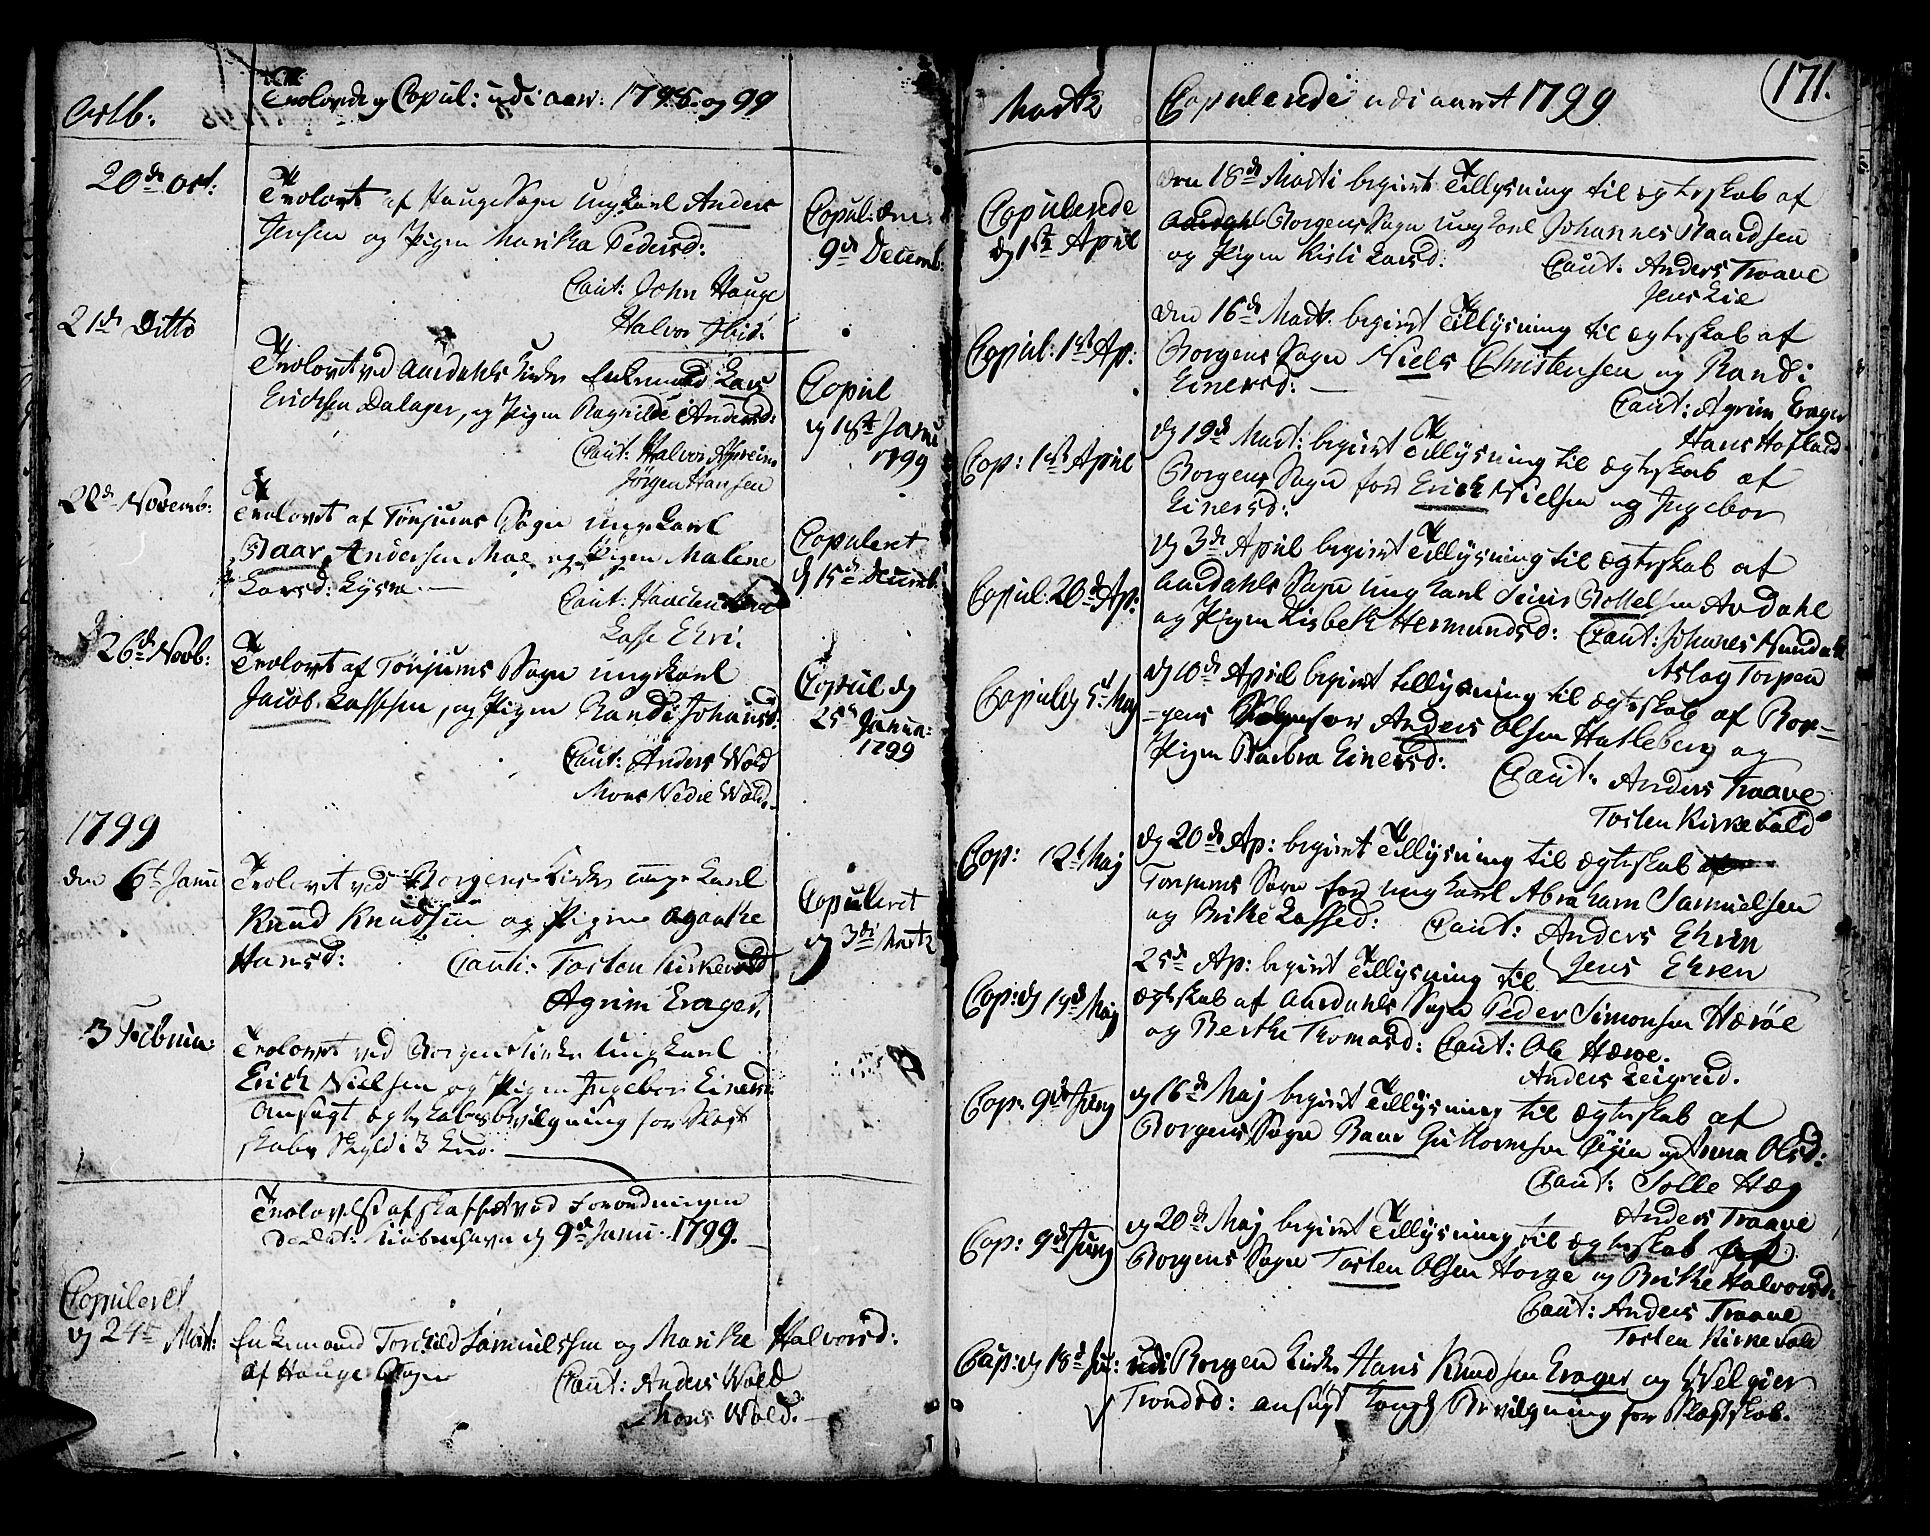 Octb.
Trolovede og Copul: udi aar: 1798. og 99
20de Oct:
Trolovet af Hauge Sogn ungkarl Anders
Jensen og Pigen Marikka Pedersd:
Caut: John Hauge
Halvor Ibid:
Copul: den
9de Decemb:
21de Ditto
Trolovet ved Aurdahls Kirke Enkemand Lars
Erichsen Dalager, og Pigen Ragnilde Andersd:
Caut: Halvor
Jørgen Hansen
Copul
dg 18de Janu
1799
22de Novemb:
Trolovet af Tønjums Sogn ungkarl
Baar Andersen Moe og Pigen Malene
Larsd: Lysne
Caut: Haachen
Lasse Ehri.
Copuleret
d 15de Decemb:
26de Novb:
Trolovet af Tønjums Sogn ungkarl
Jacob Lassesen, og Pigen Randi Johansd:
Caut: Anders Wold
Mons Nedre Wold.
Copul dg
25de Janua:
1799
1799
den 6te Janu
Trolovet ved Borgens Kirke ungkarl
Knud Knudsen og Pigen Agaathe
Hansd: Cauti: Tosten Kirkevold
Agrim Erager.
Copuleret
dg 3die Martz
3 Februa:
Trolovet ved Borgens Kirke ungkarl
Erich Nielsen og Pigen Ingebor Einersd:
ansøgt ægteskabs bevilgning for Slægt
skabs Skyld i 3 Led.
Trolovelse afskaffet ved Forordningen
De Dat: Kiøbenhavn dg 9de Janu: 1799.
Copuleret
dg 24de Mart:
Enkemand Torkild Samuelssen og Marikke Halvorsd:
af Hauge Sogn Caut: Anders Wold
Mons Wold.
171.
Martz
Copulerede udi aaret 1799
Copulerede
dg 1ste April
den 18de Marti begiert Tillysning til ægteskab af
Borgens Sogn ungkarl Johannes Baardsen
og Pigen Kisti Larsd: Caut: Anders Traave
Jens Lie
Copul: 1ste Ap:
den 16de Mart. begiert Tillysning til ægteskab af
Borgens Sogn Niels Christensen og Randi
Einersd:
Caut: Agrim Erager
Hans Hofland
Cop: 1ste April
dg 19de Mart: begiert Tillysning til ægteskab af
Borgens Sogn for Erich Nielsen og Ingebor
Einersd:
Copul: 20de Ap:
dg 3de April begiert Tillysning til ægteskab af
Aurdahls Sogn ungkarl Siur Bottelsen Avdahl
og Pigen Lisbeth Hermundsd: Caut: Johanes Hunda
Aslag Torpen
Copul dg 5te Maj
dg 10de April begiert Tillysning til ægteskab af Bor=
=gens for Anders Olsen Hatleberg og
Pigen Barbra Einersd: Caut: Anders Traave
Tosten Kirkevold
Cop: 12te Maj
dg 20de Ap: begiert Tillysning til ægteskab
Tonjums Sogn for ungkarl Abraham Samuelsen
og Brithe Lassed: Caut: Anders Ehrin
Jens Ehren
Cop: dg 19de Maj
25de Ap: begiert Tillysning til
ægteskab af Aurdahls Sogn Peder Simonsen Hærøe
og Berthe Thomasd: Caut: Ole Hærøe.
Anders Leigrud.
Cop: 9de Juny
dg 16de Maj begiert Tillysning til ægteskab af
Borgens Sogn Baar Guttormsen Øigin og Anna Olsd:
Caut: Solle Hæg
Anders Traave
Cop: 9de Juny
dg 20de Maj begiert Tillysning til ægteskab af
Borgens Sogn Tosten Olsen Horge og Brithe Halvorsd:
Caut: Anders Traave
Tosten Kirkevold
Cop: dg 18de Ju:
udi Borgen Kirke Hans Knudsen Erager og Welgier
Trondsd: ansøgt Kongl Bevilgning for Slægtskab.